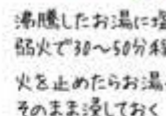 沸騰したお湯に塩
弱火で30〜50分程
火を止めたらお湯
そのまま浸しておく